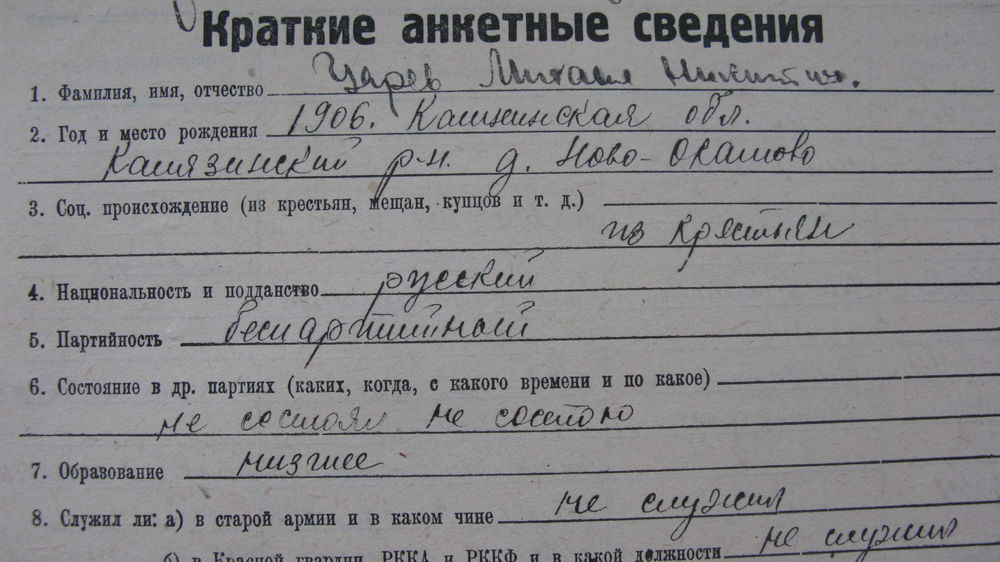 Краткие анкетные сведения
1. Фамилия, имя, отчество Царев Михаил Никитич.
2. Год и место рождения 1906. Калининская обл.
Калязинский р-н. д. Ново-Окатово
3. Соц. происхождение (из крестьян, мещан, купцов и т. д.)
из крестьян
4. Национальность и подданство русский
5. Партийность беспартийный
6. Состояние в др. партиях (каких, когда, с какого времени и по какое)
не состоял не состою
7. Образование низшее
8. Служил ли: а) в старой армии и в каком чине не служил
б) в Красной гвардии, РККА и РККФ и в какой должности не служил